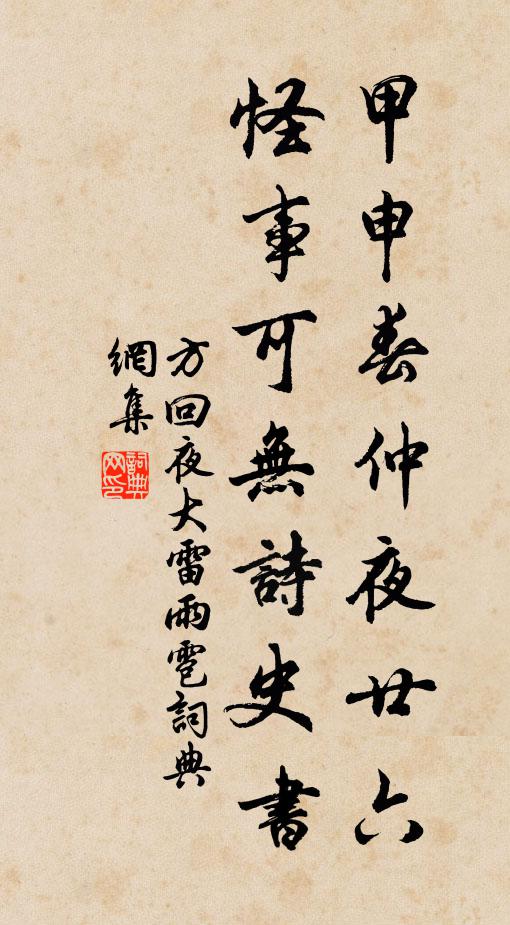 甲申春仲夜廿六
怪事可無詩史書
方回夜大雷雨雹詞典
網集
詞典網印